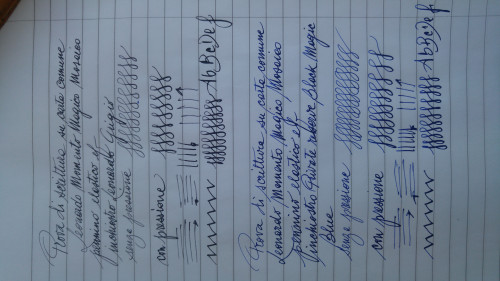 Prova di scrittura su carta comune
Leonardo Momento Magico Mosaico
pennino elastico ef
inchiostro Leonardo
senza pressione
con pressione
AbBcDef
Prova di scrittura su carta comune
Leonardo Momento Magico Mosaico
pennino elastico ef,
inchiostro Private reserve Black Magic
Blue
senza pressione
con pressione
AbBcDef